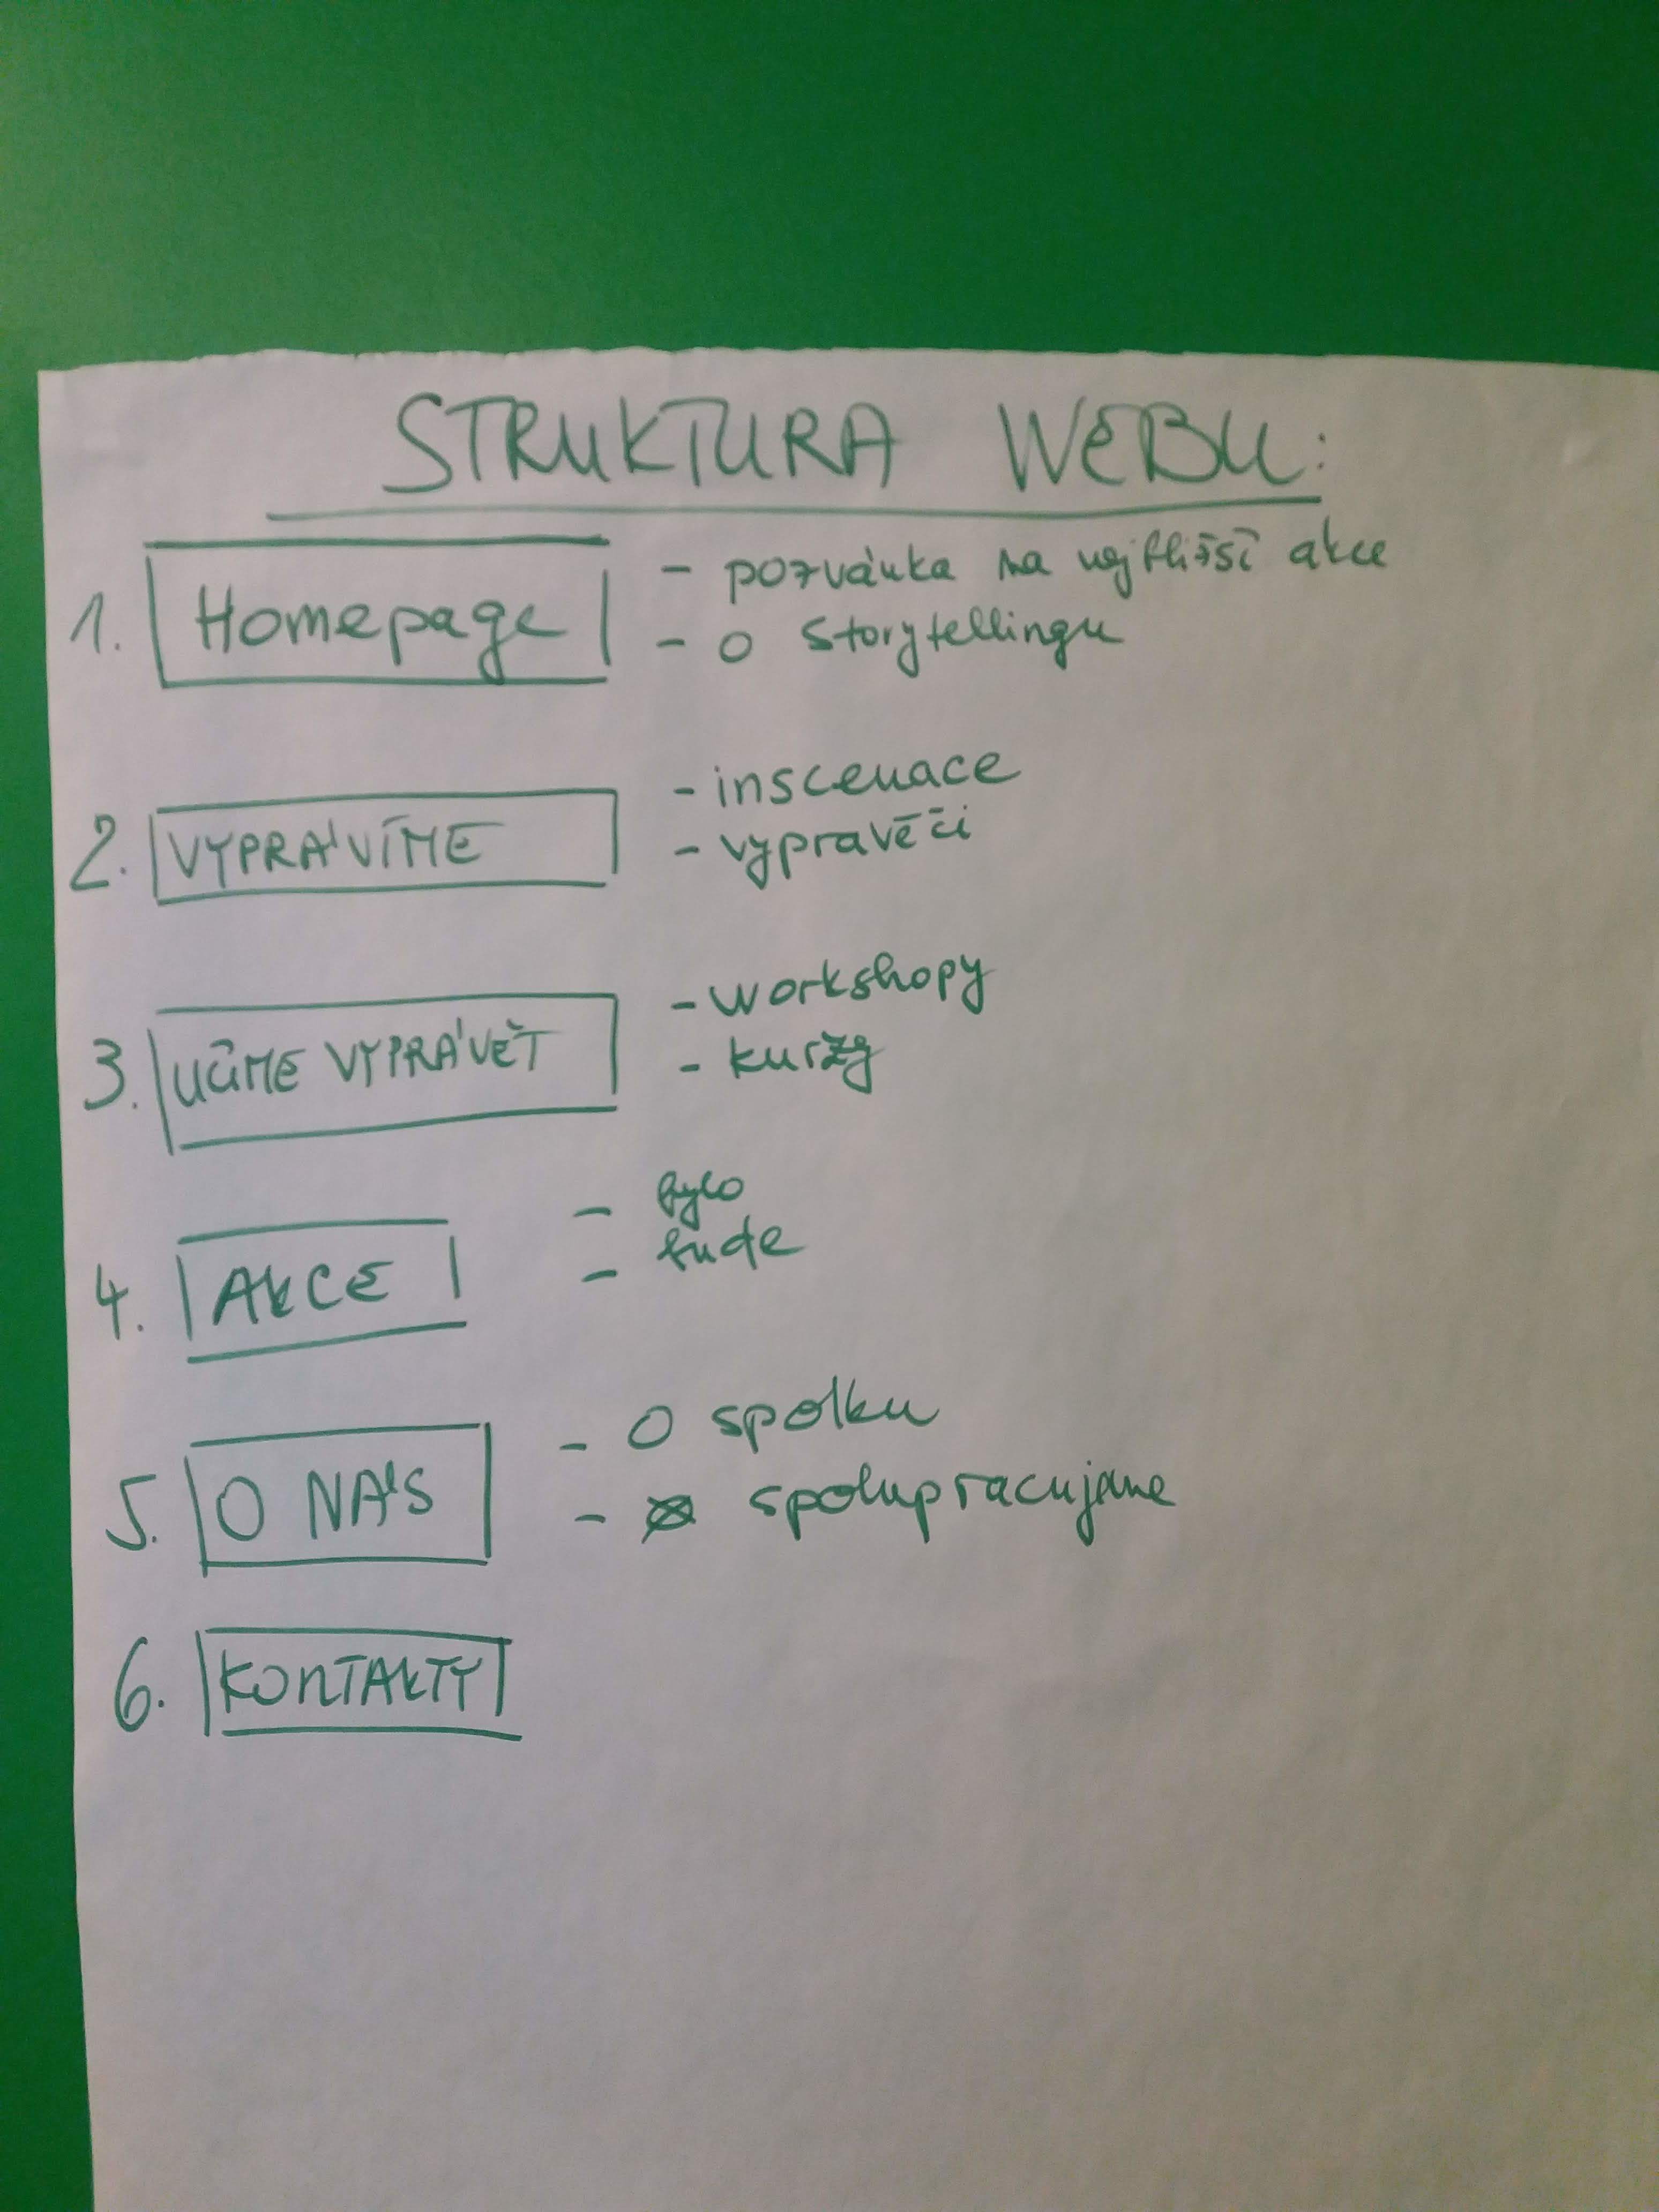 STRUKTURA WEBU:
1. Homepage - pozvánka na nejbližší akce
- o storytellingu
2. VYPRÁVÍME - inscenace
- vypravěči
3. UČÍME VYPRÁVĚT - workshopy
- kurzy
4. AKCE - bylo
- bude
5. O NÁS - O spolku
- spolupracujeme
6. KONTAKTY